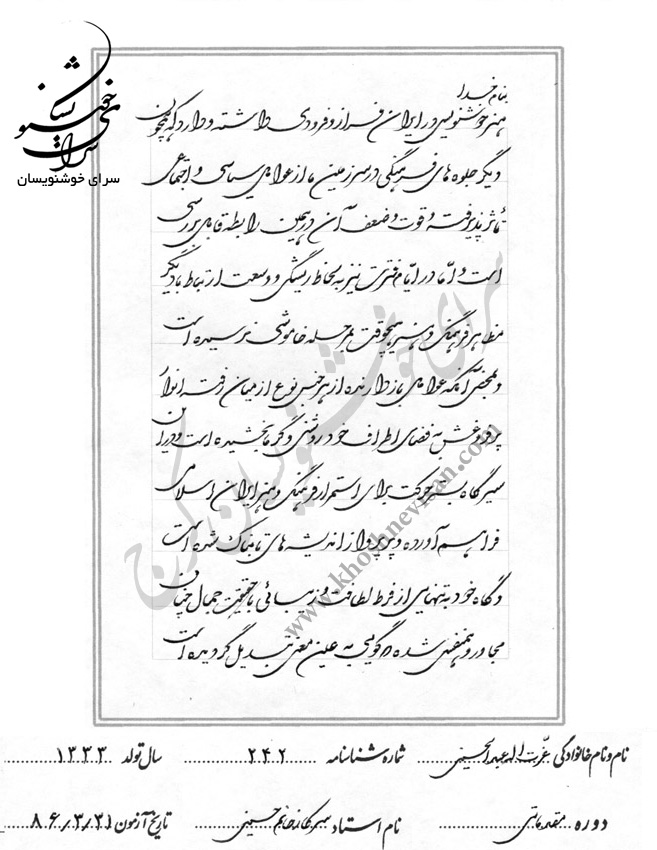 سرای خوشنویسان
بنام خدا
هنر خوشنویسی در ایران فراز و فرودی داشته و دارد که همچون
دیگر جلوه های فرهنگی در سرزمین ما از عوامل سیاسی و اجتماعی
تأثر پذیرفته و قوت و ضعف آن در همین رابطه قابل بررسی
است و امّا در ایّام فترت نیز به لحاظ ریشگی و وسعت ارتباط با دیگر
مظاهر فرهنگی و هنری هیچوقت بمرحله خاموشی نرسیده است
و بمحض آنکه عوامل بازدارنده از هر جنس و نوع از میان رفته انوار
پر فروغش به فضای اطراف خود روشنی و گرما بخشیده است و در این
سیر گاه بستر حرکت برای استمرار فرهنگ و هنر ایران اسلامی
فراهم آورده و پر پرواز اندیشه های تابناک شده است
و گاه خود به تنهایی از فرط لطافت و زیبائی با حقیقت جمال چنان
مجاور و همنفس شده گویی به عین معنی تبدیل گردیده است
سرای خوشنویسان کرج
www.khoshnevisan.com
نام و نام خانوادگی عزّت اله عبدالحسینی شماره شناسنامه ۲۴۲ سال تولد ۱۳۳۳
دوره مقدماتی نام استاد سرکار خانم حسینی تاریخ آزمون ۸۶/۳/۳۱